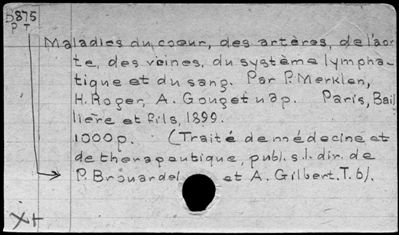 D875
PT
Maladies du coeur, des artères, de l'aor
te, des veines, du système lympha-
tique et du sang. Par P. Merklen,
H. Roger, A. Gouget u ap. Paris, Bail
lière et fils, 1899.
1000 p. (Traité de médecine et
de therapeutique, publ. s. l. dir. de
P. Brouardel et A. Gilbert. T. 6).
X+